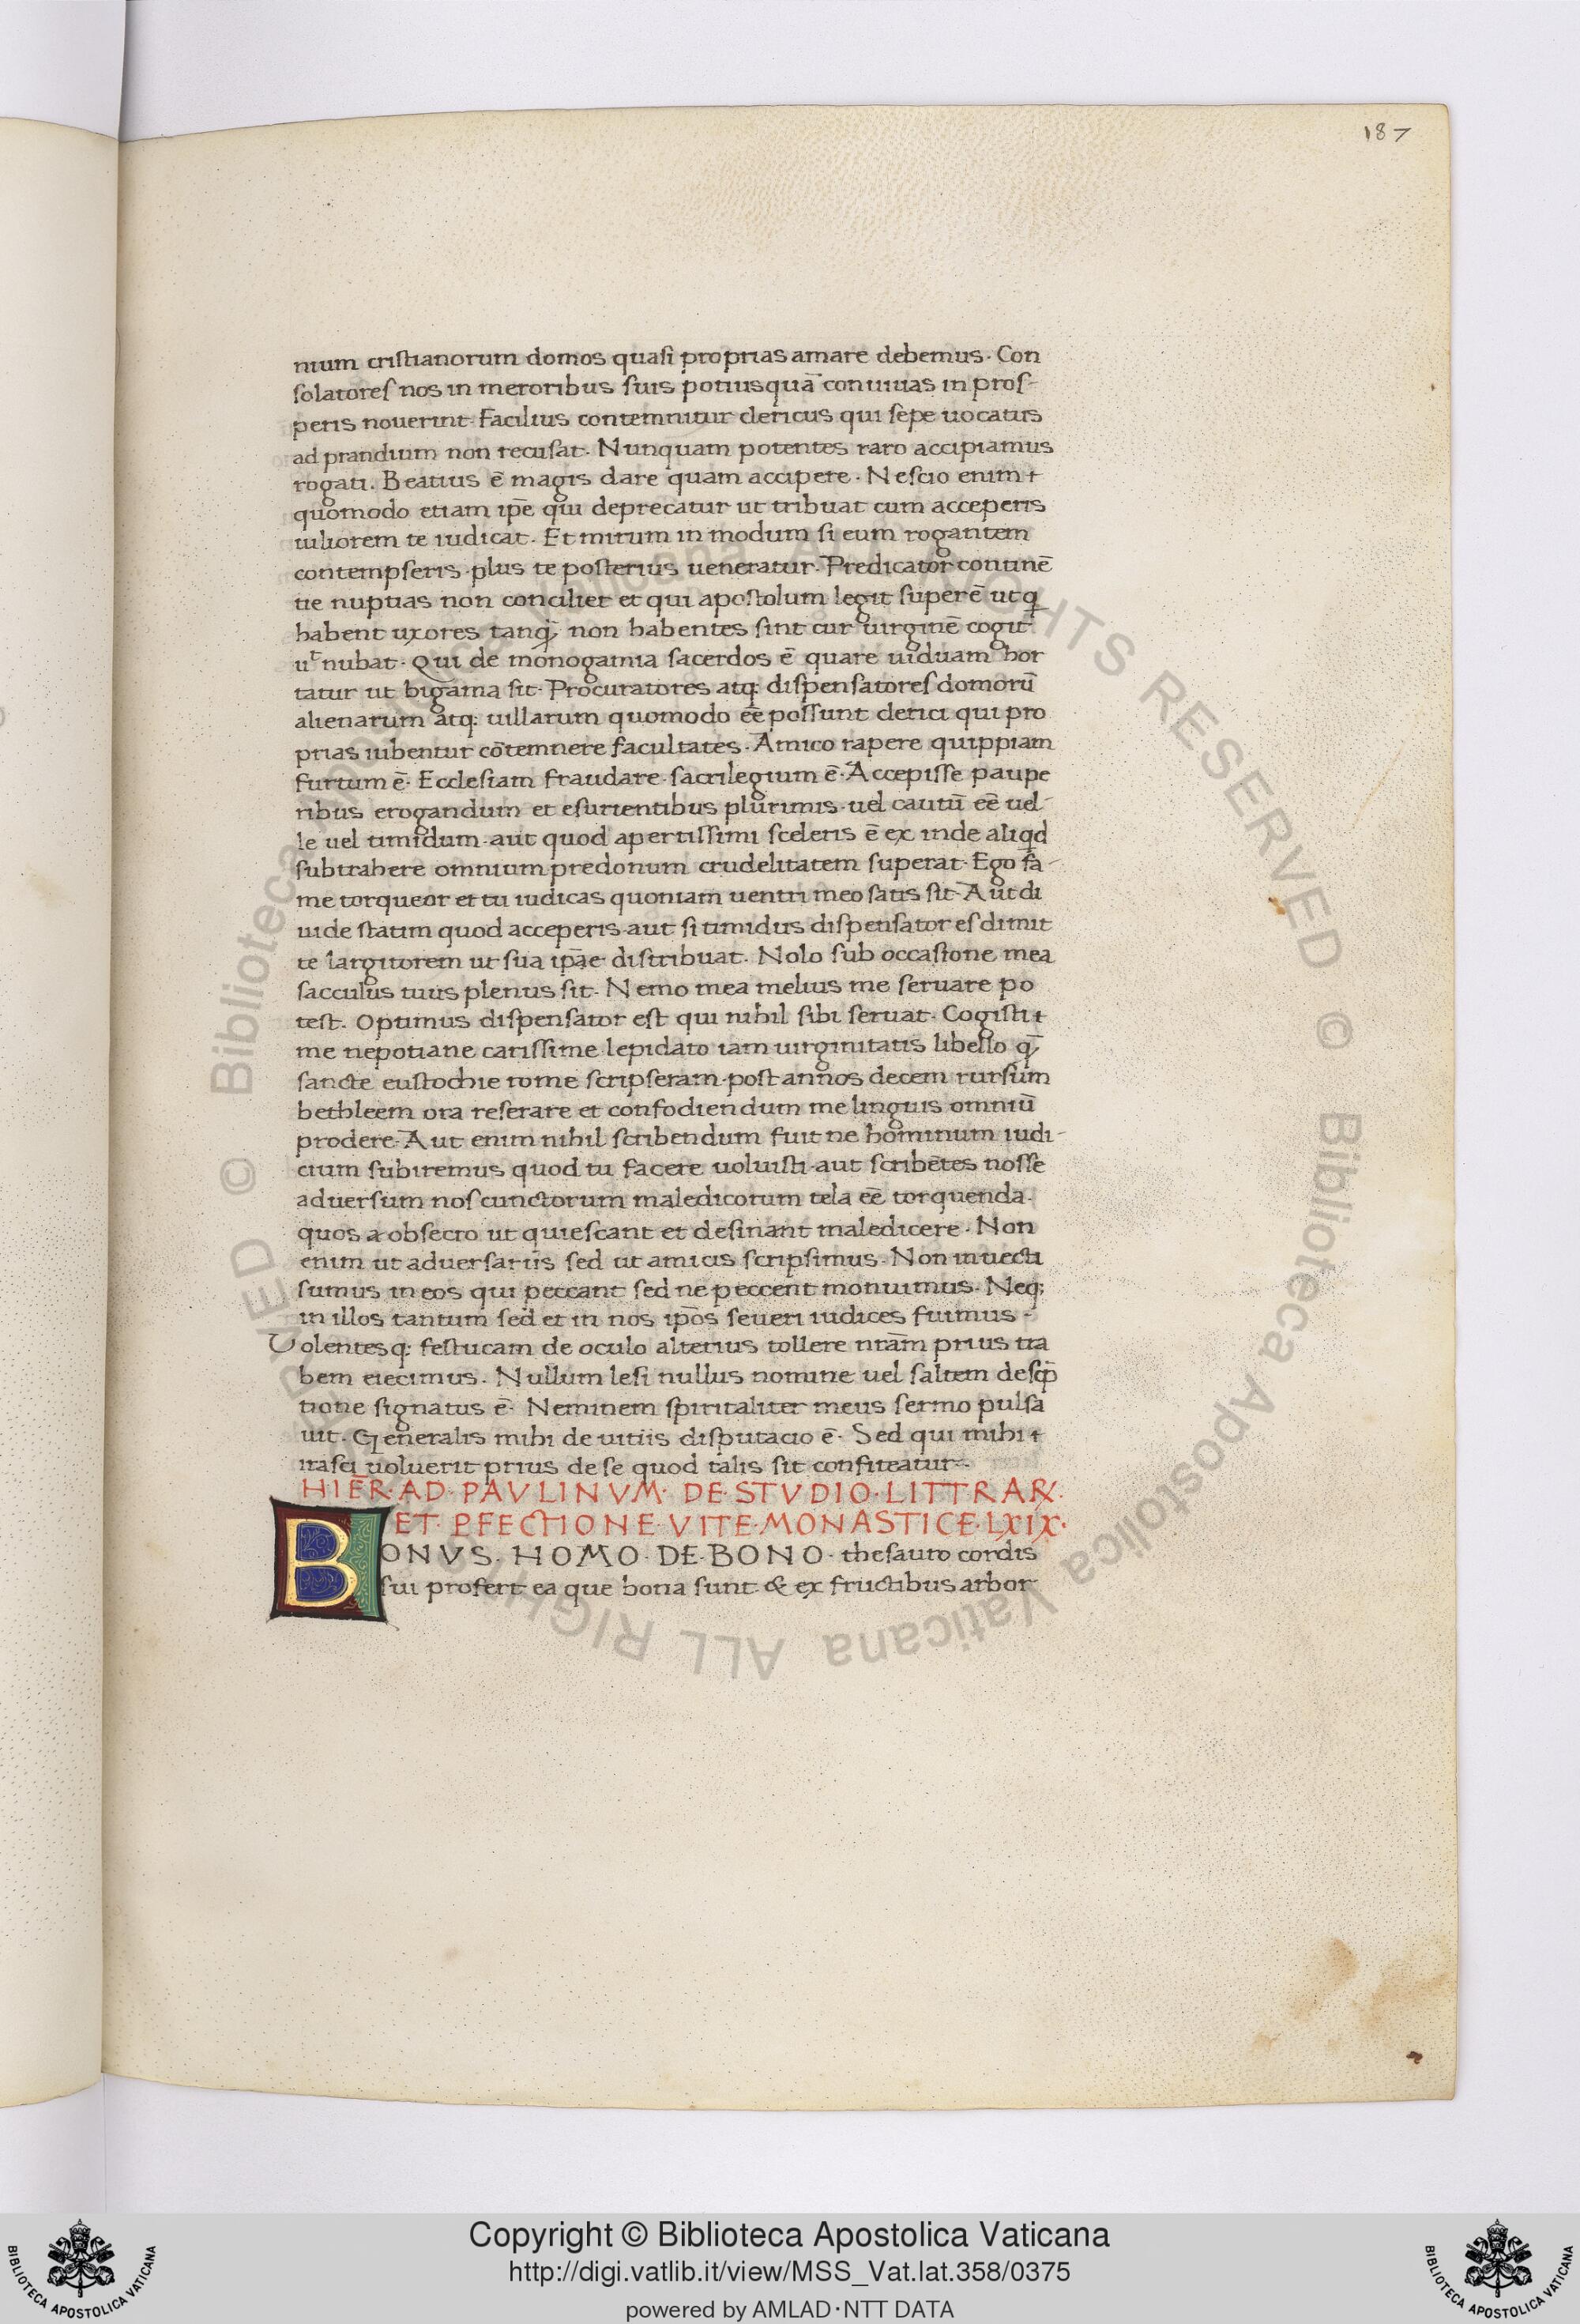 187
nium cristianorum domos quasi proprias amare debemus. Con
solatores nos in meroribus suis potiusquā conuiuas in pros-
peris nouerint. Facilius contemnitur clericus qui sepe uocatus
ad prandium non recusat. Nunquam potentes raro accipiamus
rogati. Beatius ē magis dare quam accipere. Nescio enim
quomodo etiam ip̄e qui deprecatur ut tribuat cum acceperis
iuliorem te iudicat. Et mirum in modum si eum rogantem
contempseris plus te posterius ueneratur. Predicator continē
tie nuptias non conciliet et qui apostolum legit superē ut q
habent uxores tanq̄ non habentes sint cur uirginē cogit
ut nubat. Qui de monogamia sacerdos ē quare uiduam hor
tatur ut bigama sit. Procuratores atq: dispensatores domorū
alienarum atq: uillarum quomodo eē possunt clerici qui pro
prias iubentur cōtemnere facultates. Amico rapere quippiam
furtum ē. Ecclesiam fraudare sacrilegium ē. Accepisse paupe
ribus erogandum et esurientibus plurimis uel cautū eē uel-
le uel timidum aut quod apertissimi sceleris ē ex inde aliqd
subtrahere omnium predonum crudelitatem superat. Ego fa-
me torqueor et tu iudicas quoniam uentri meo satis sit. Aut di
uide statim quod acceperis aut si timidus dispensator es dimit
te largitorem ut sua ip̄ae distribuat. Nolo sub occasione mea
sacculus tuus plenus sit. Nemo mea melius me seruare po
test. Optimus dispensator est qui nihil sibi seruat. Cogisti
me nepotiane carissime lepidato iam uirginitatis libello q̄
sancte eustochie rome scripseram post annos decem rursum
bethleem ora reserare et confodiendum me linguis omniū
prodere. Aut enim nihil scribendum fuit ne hominum iudi-
cium subiremus quod tu facere uoluisti aut scribētes nosse
aduersum nos cunctorum maledicorum tela eē torquenda.
quos a obsecro ut quiescant et desinant maledicere. Non
enim ut aduersariis sed ut amicis scripsimus. Non inuecti
sumus in eos qui peccant sed ne peccent monuimus. Neq;
in illos tantum sed et in nos ip̄os seueri iudices fuimus.
Uolentesq: festucam de oculo alterius tollere nrām prius tra
bem eiecimus. Nullum lesi nullus nomine uel saltem descp̄
tione signatus ē. Neminem spiritaliter meus sermo pulsa
uit. Generalis mihi de uitiis disputacio ē. Sed qui mihi
irasci uoluerit prius de se quod talis sit confiteatur.
HIER̄. AD. PAVLINVM. DE. STVDIO. LITTRARꝜ.
ET. PFECTIONE. VITE. MONASTICE. LXIX.
BONVS. HOMO. DE. BONO. thesauro cordis
sui profert ea que bona sunt & ex fructibus arbor
© Biblioteca Apostolica Vaticana ALL RIGHTS RESERVED © Biblioteca Apostolica Vaticana ALL RIGHTS RESERVED
Copyright © Biblioteca Apostolica Vaticana
http://digi.vatlib.it/view/MSS_Vat.lat.358/0375
powered by AMLAD·NTT DATA
BIBLIOTECA APOSTOLICA VATICANA
BIBLIOTECA APOSTOLICA VATICANA